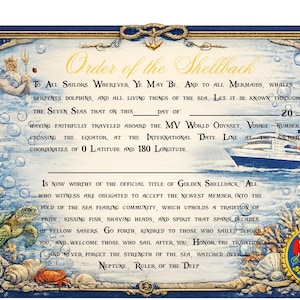 Order of the Shellback
To All Sailors Wherever Ye May Be. And to all Mermaids, whales
serpents dolphins, and all living things of the sea. Let it be known through
the Seven Seas that on this day of 20
having faithfully traveled aboard the MV World Odyssey Voyage number
crossing the equator, at the International Date Line at the
coordinates of 0 Latitude and 180 Longitude
Is now worthy of the official title of Golden Shellback. All
who witness are obligated to accept the newest member, into the
fold of the sea fearing community, which upholds a tradition of
pride, kissing fish, shaving heads, and spirit that spans decades
of fellow sailors. Go forth, kindred to those who sailed before
you, and welcome those who sail after you. Honor the traditions
and never forget the strength of the sea, watched over by
Neptune, Ruler of the Deep